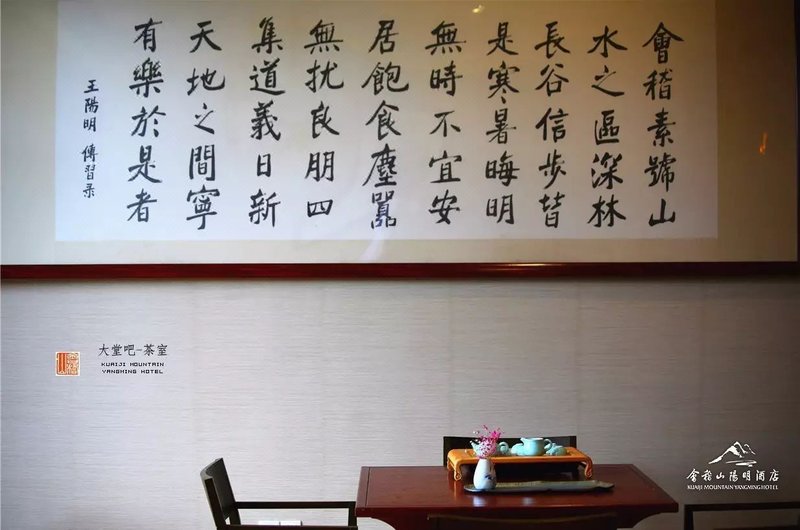 會稽素號山
水之區深林
長谷信步皆
是寒暑晦明
無時不宜安
居飽食塵囂
無扰良朋四
集道義日新
天地之間寧
有樂於是者
王陽明 傳習录
大堂吧-茶室
KUAIJI MOUNTAIN
YANGMING HOTEL
會稽山陽明酒店
KUAIJI MOUNTAIN YANGMING HOTEL